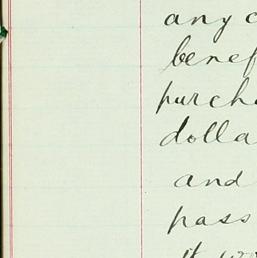 any c
benef
purcha
dolla
and
pass
it w